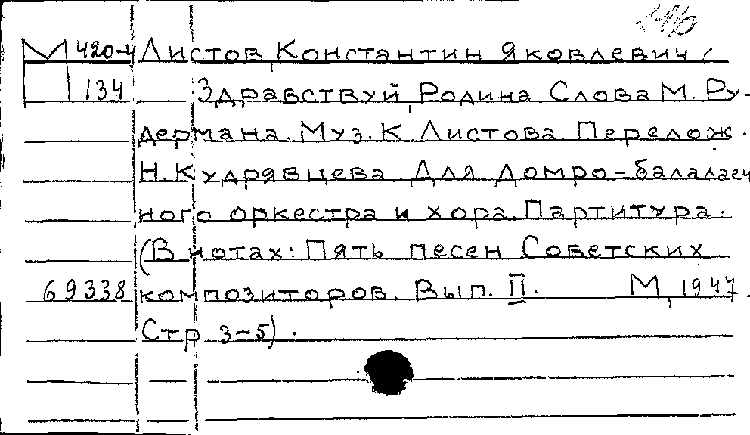 М 420-4 Листов, Константин Яковлевич.
134 Здравствуй, Родина. Слова М. Ру-
дермана. Муз. К. Листова. Перелож.
Н. Кудрявцева. Для домро-балалаеч
ного оркестра и хора. Партитура.
(В нотах: Пять песен Советских
69338 композиторов. Вып. II. М, 1947.
Стр 3-5).